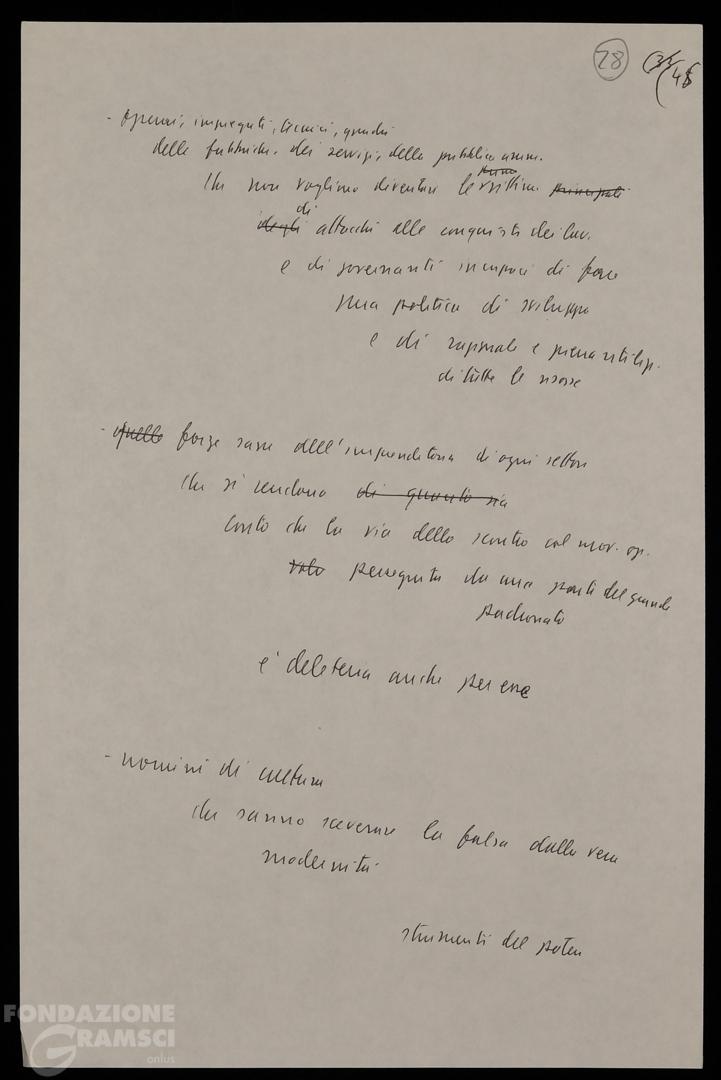 28
- operai, impiegati, tecnici, quadri
delle fabbriche, dei servizi, della pubblica amm.
che non vogliono diventare le prime vittime principali
degli di attacchi alle conquiste dei lav.
e di governanti incapaci di fare
una politica di sviluppo
e di razionale e piena utiliz.
di tutte le risorse
- quelle forze sane dell'imprenditoria di ogni settore
che si rendono di quanto sia
conto che la via dello scontro col mov. op.
perseguita da una parte del grande
padronato
e' deleteria anche per esse
- uomini di cultura
che sanno sceverare la falsa dalla vera
modernità
strumenti del potere
FONDAZIONE
GRAMSCI
onlus